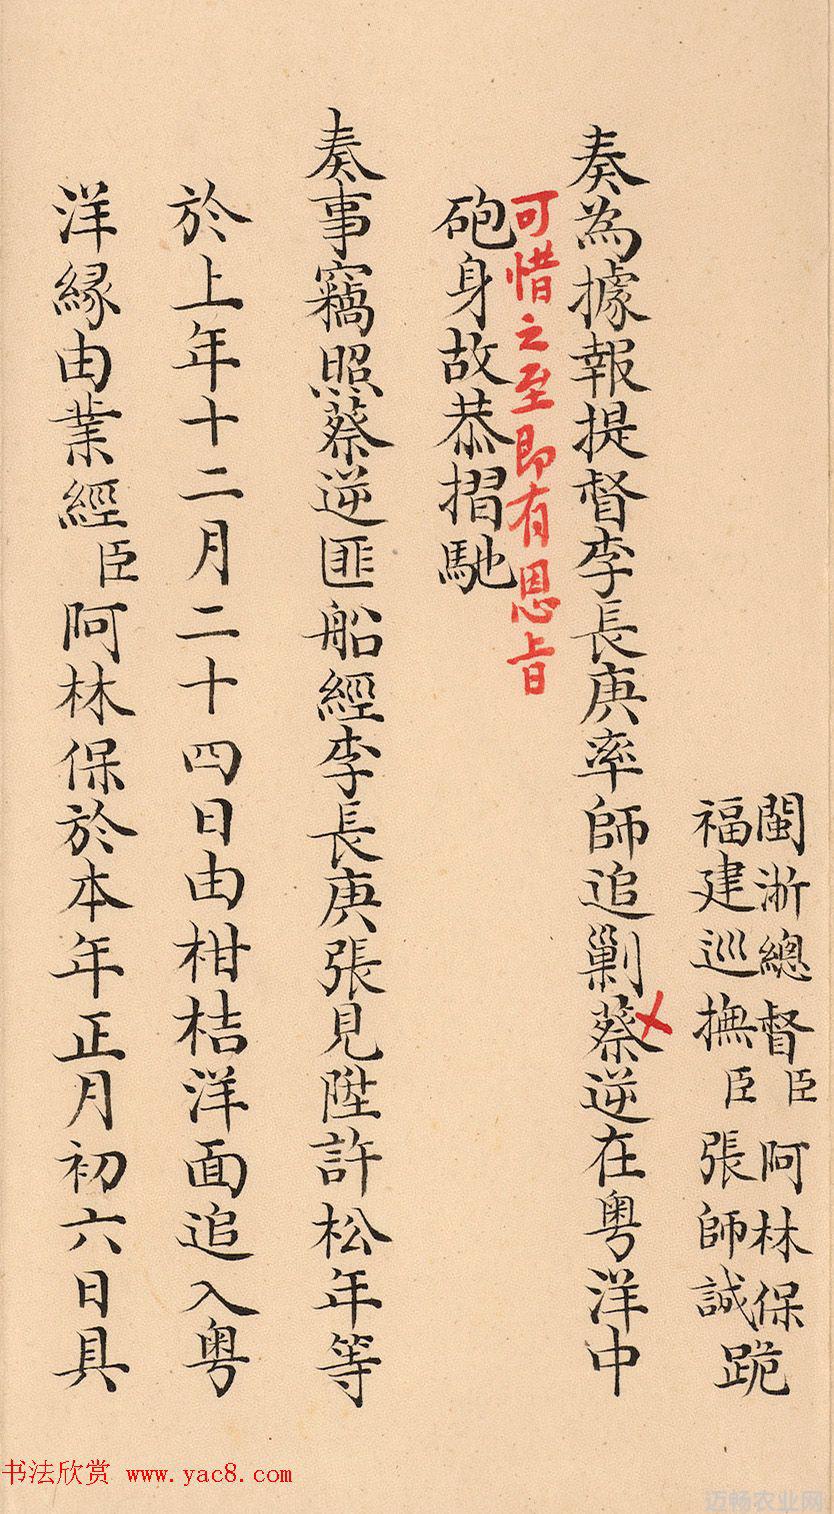 閩浙總督臣阿林保跪
福建巡撫臣張師誠
奏為據報提督李長庚率師追剿蔡逆在粵洋中
可惜之至即有恩旨
砲身故恭摺馳
奏事竊照蔡逆匪船經李長庚張見陞許松年等
於上年十二月二十四日由柑桔洋面追入粵
洋緣由業經臣阿林保於本年正月初六日具
书法欣赏 www.yac8.com
迈畅农业网